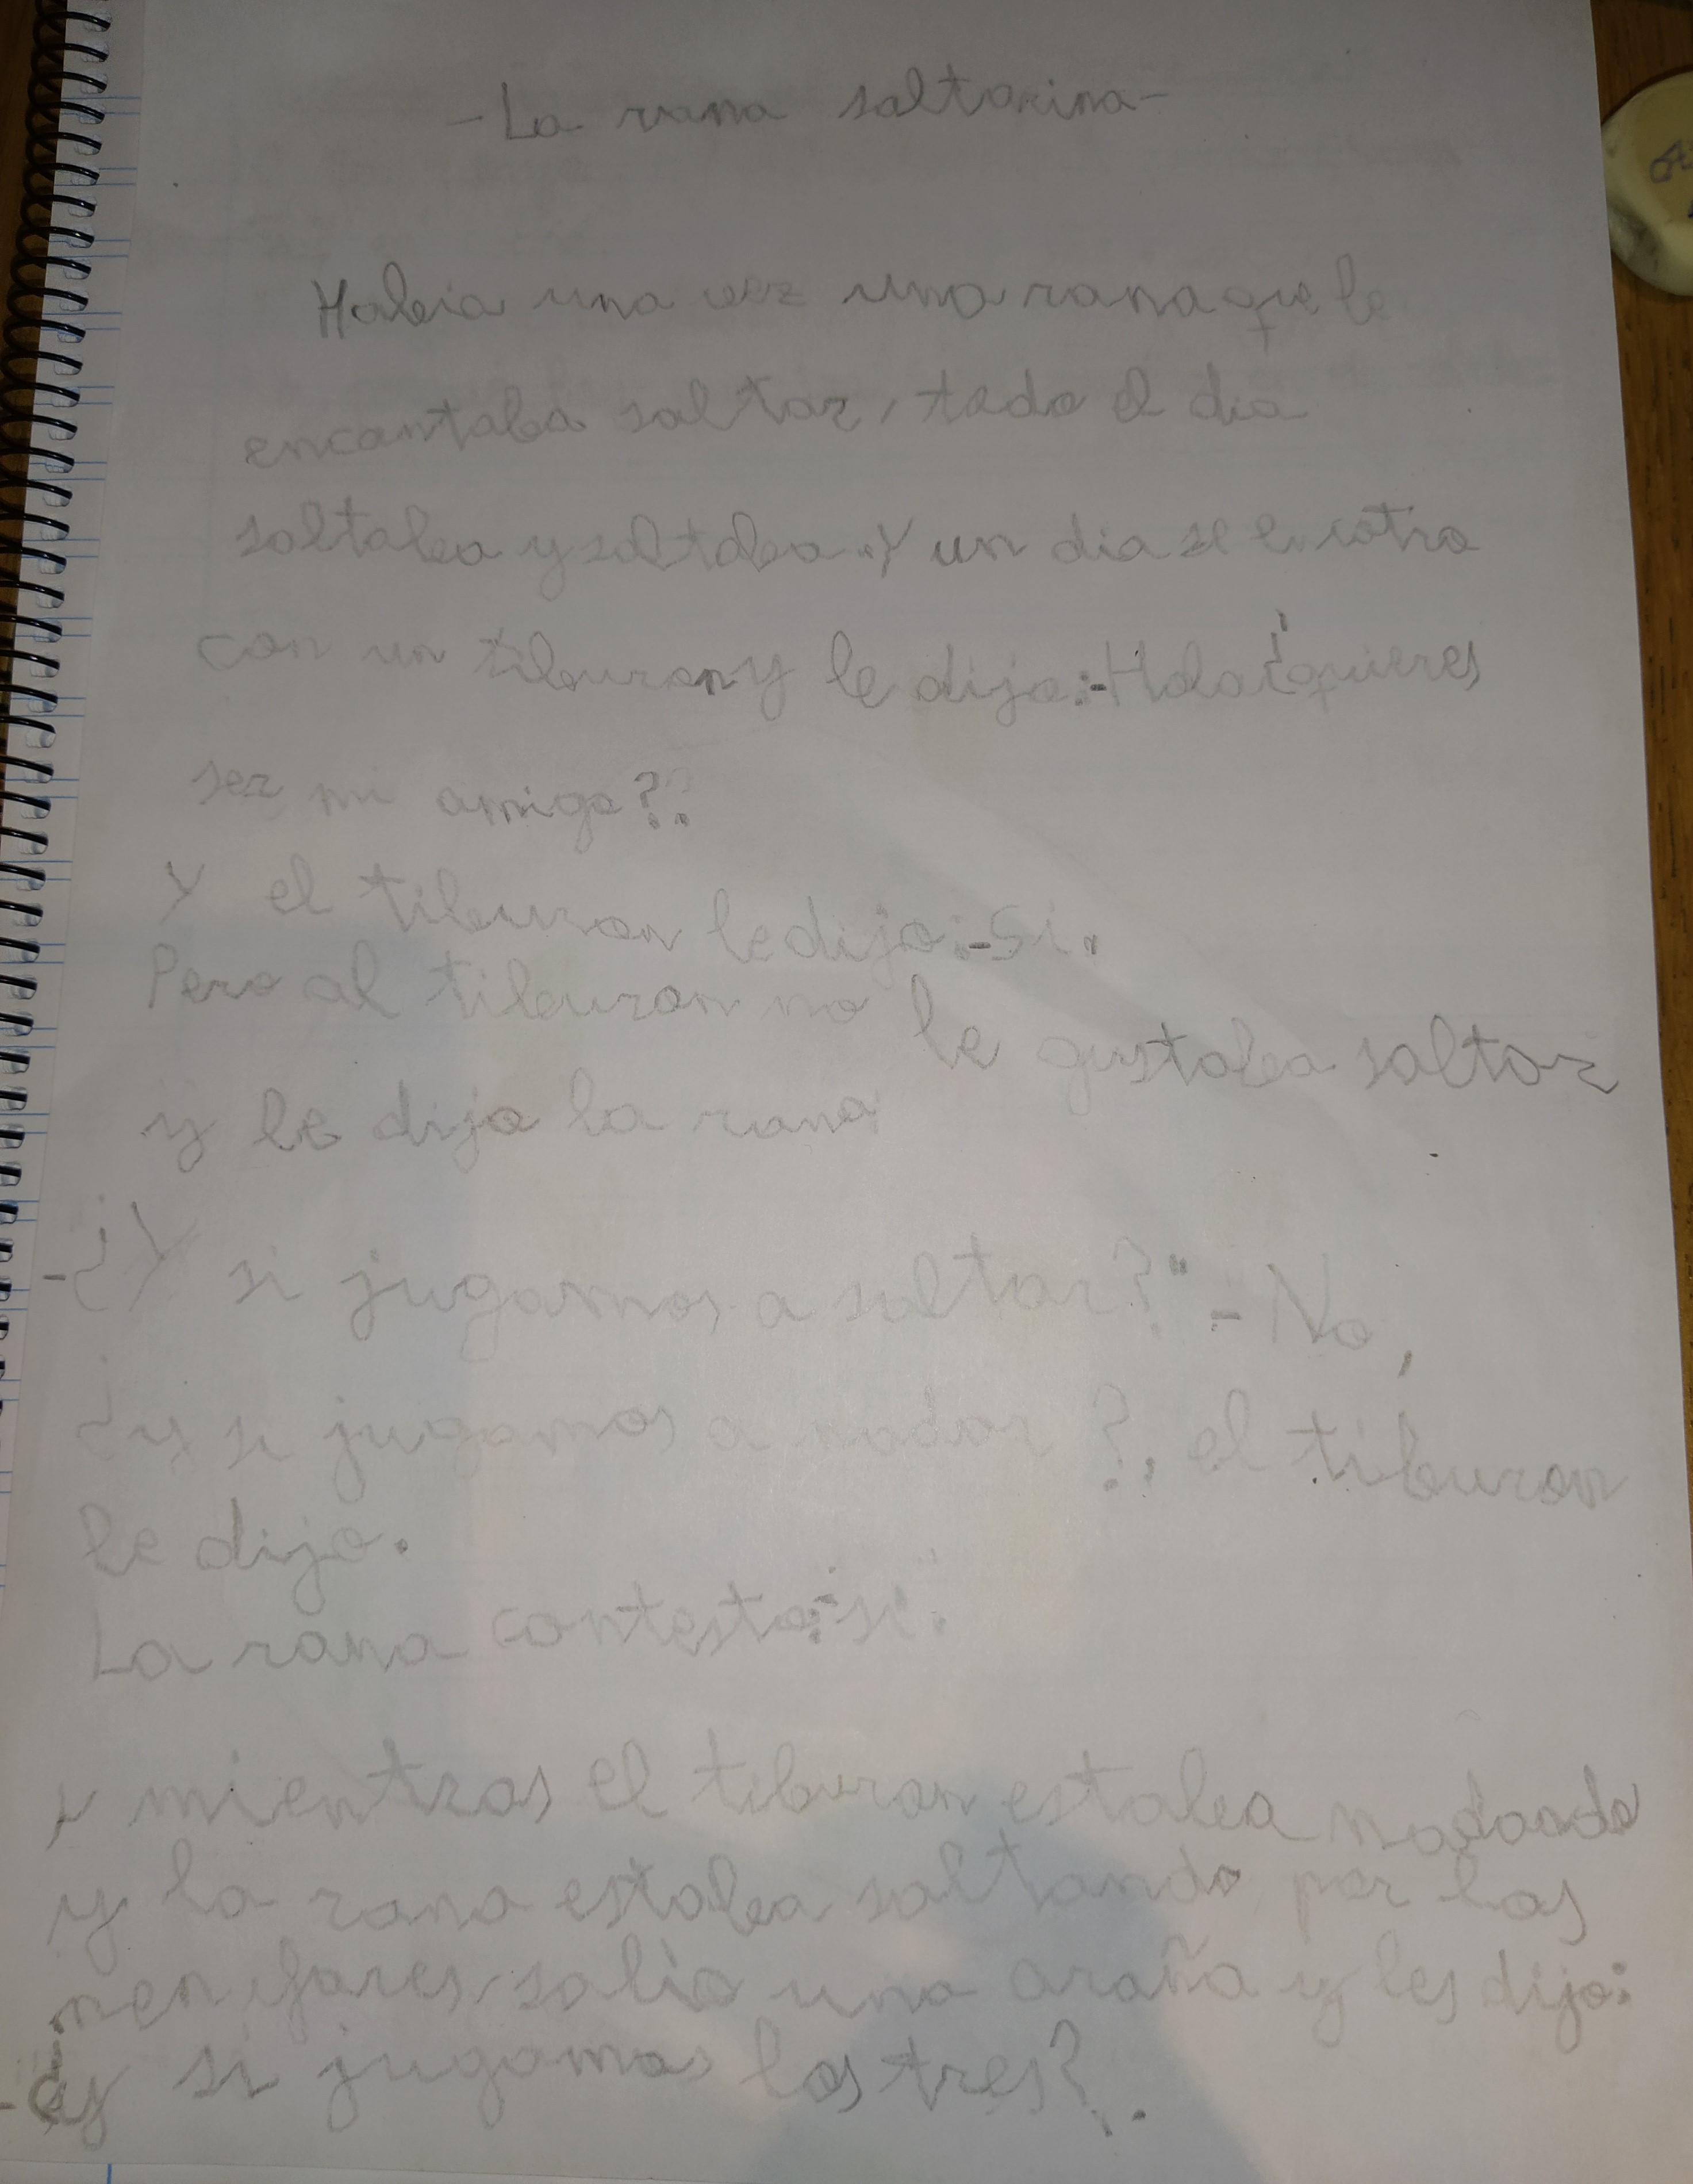 -La rana saltarina-
Habia una vez una rana que le
encantaba saltar, todo el dia
saltaba y saltaba. Y un dia se encotro
con un tiburon y le dijo:-Hola ¿quieres
ser mi amigo?.
Y el tiburon le dijo:-Si.
Pero al tiburon no le gustaba saltar
y le dijo la rana
-¿Y si jugamos a saltar?" -No,
¿y si jugamos a nadar?, el tiburon
le dijo.
La rana contesto:-si.
Y mientras el tiburon estaba nadando
y la rana estaba saltando por los
nenufares, salio una araña y les dijo:
-¿y si jugamos los tres?.